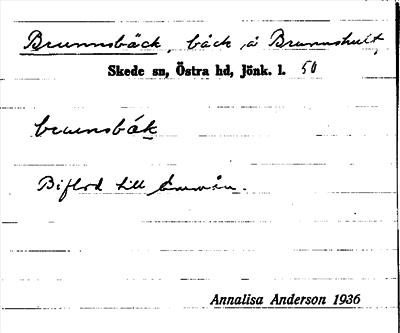 Brunnsbäck, bäck, å Brunnshult,
Skede sn, Östra hd, Jönk. l. 50
brunsbäk
Biflod till Emmån.
Annalisa Anderson 1936